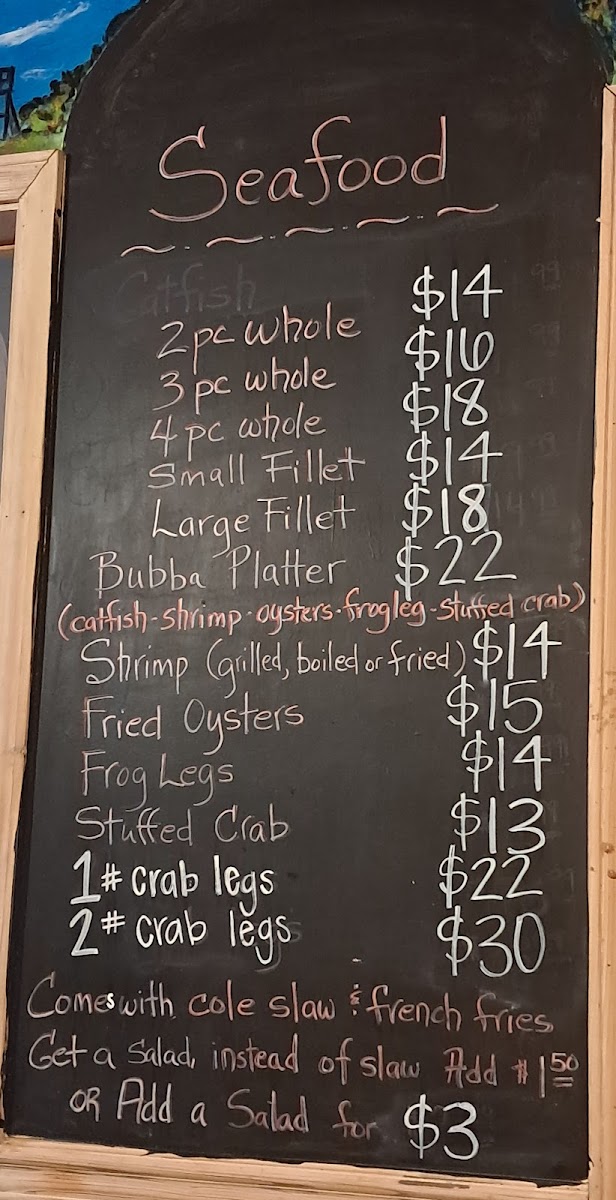 Seafood
Catfish $14
2 pc whole $16
3 pc whole $18
4 pc whole $14
Small Fillet $18
Large Fillet
Bubba Platter $22
(catfish-shrimp-oysters-frog leg-stuffed crab)
Shrimp (grilled, boiled or fried) $14
Fried Oysters $15
Frog Legs $14
Stuffed Crab $13
1# crab legs $22
2# crab legs $30
Comes with cole slaw & french fries
Get a Salad, instead of slaw Add $1.50
OR Add a Salad for $3